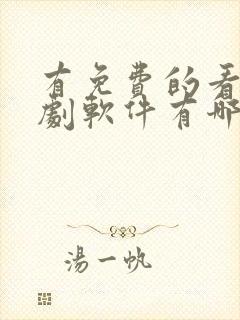 有免費的看
劇軟件有哪
湯一帆